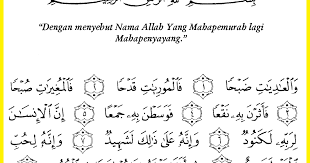 “Dengan menyebut Nama Allah Yang Mahapemurah lagi
Mahapenyayang.”
وَٱلْعَٰدِيَٰتِ ضَبْحًا ١ فَٱلْمُورِيَٰتِ قَدْحًا ٢ فَٱلْمُغِيرَٰتِ صُبْحًا
٣ فَأَثَرْنَ بِهِۦ نَقْعًا ٤ فَوَسَطْنَ بِهِۦ جَمْعًا ٥ إِنَّ ٱلْإِنسَٰنَ
لِرَبِّهِۦ لَكَنُودٌ ٦ وَإِنَّهُۥ عَلَىٰ ذَٰلِكَ لَشَهِيدٌ ٧ وَإِنَّهُۥ لِحُبِّ